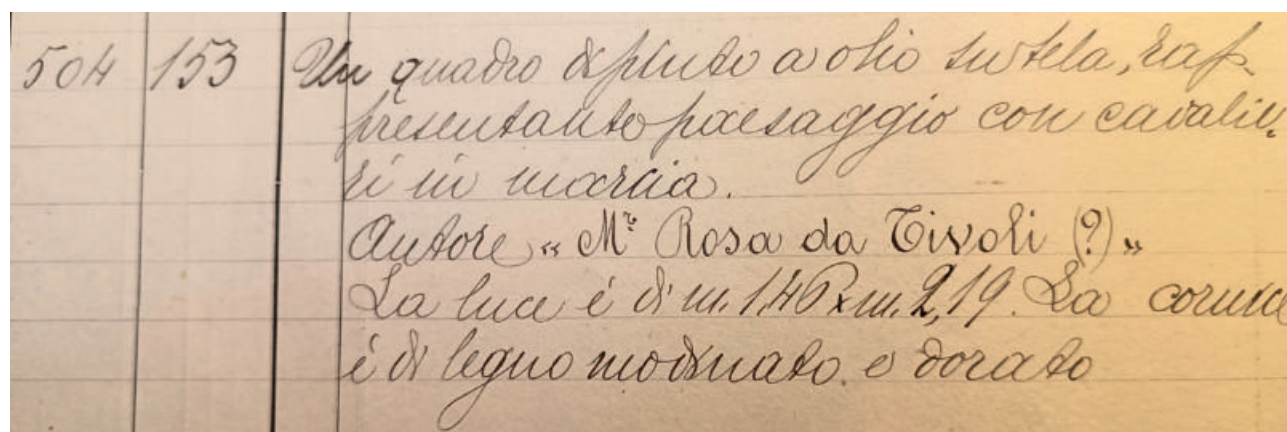 504 153 Un quadro dipinto a olio su tela, rap-
presentante paesaggio con cavalie-
ri in marcia.
Autore « Mr Rosa da Tivoli (?) »
La luce è di m. 1,46 x m. 2,19. La cornice
è di legno modinato e dorato